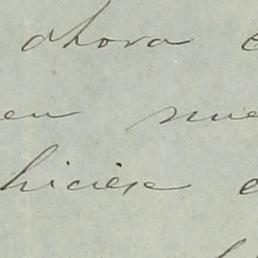 ahora
en nue
hiciese